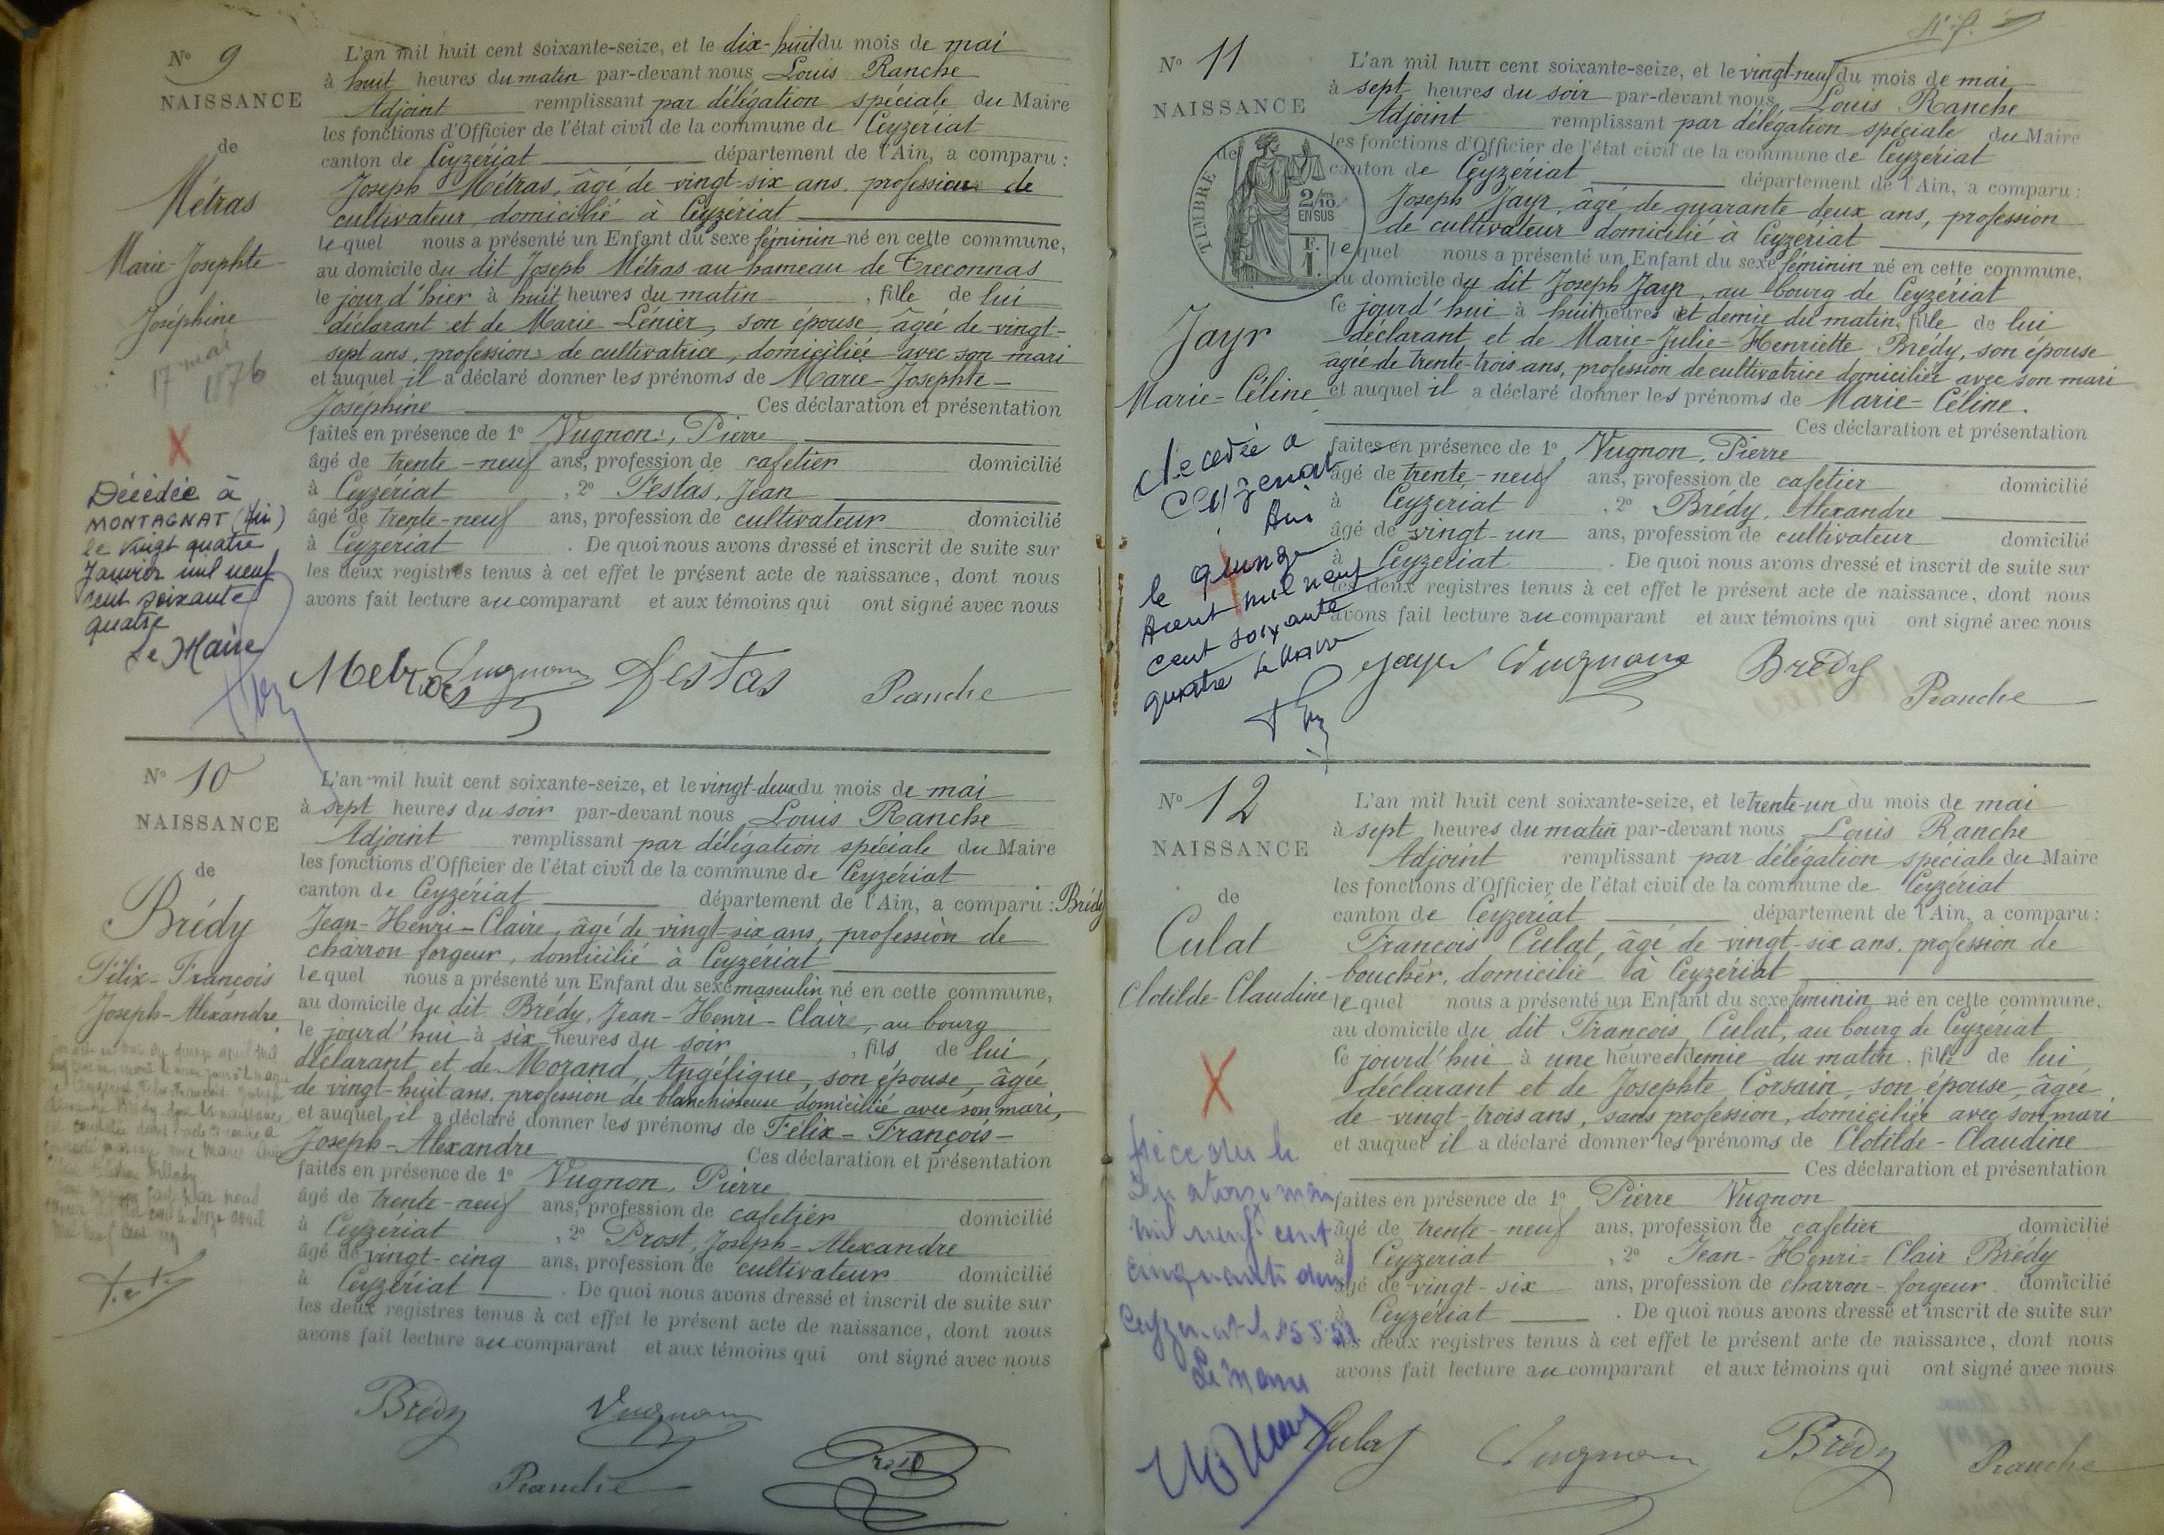 N° 9
NAISSANCE
de
Métras
Marie-Josephte-
Joséphine
17 mai
1876
Décédée à
MONTAGNAT (Ain)
le vingt quatre
Janvier mil neuf
cent soixante
quatre
Le Maire
L'an mil huit cent soixante-seize, et le dix-huit du mois de mai
à huit heures du matin par-devant nous Louis Ranche
Adjoint remplissant par délégation spéciale du Maire
les fonctions d'Officier de l'état civil de la commune de Ceyzériat
canton de Ceyzériat département de l'Ain, a comparu :
Joseph Métras, âgé de vingt-six ans, profession de
cultivateur, domicilié à Ceyzériat
lequel nous a présenté un Enfant du sexe féminin né en cette commune,
au domicile du dit Joseph Métras au hameau de Treconnas
le jour d'hier à huit heures du matin, fille de lui
déclarant et de Marie Lénier, son épouse âgée de vingt-
sept ans, profession de cultivatrice, domiciliée avec son mari
et auquel il a déclaré donner les prénoms de Marie-Josephte-
Joséphine Ces déclaration et présentation
faites en présence de 1° Vugnon, Pierre
âgé de trente-neuf ans, profession de cafetier domicilié
à Ceyzériat, 2° Festas, Jean
âgé de trente-neuf ans, profession de cultivateur domicilié
à Ceyzériat. De quoi nous avons dressé et inscrit de suite sur
les deux registres tenus à cet effet le présent acte de naissance, dont nous
avons fait lecture au comparant et aux témoins qui ont signé avec nous
Metras Vugnon Festas Ranche
N° 10
NAISSANCE
de
Brédy
Félix-François
Joseph-Alexandre
L'an mil huit cent soixante-seize, et le vingt-deux du mois de mai
à sept heures du soir par-devant nous Louis Ranche
Adjoint remplissant par délégation spéciale du Maire
les fonctions d'Officier de l'état civil de la commune de Ceyzériat
canton de Ceyzériat département de l'Ain, a comparu : Brédy
Jean-Henri-Claire, âgé de vingt-six ans, profession de
charron forgeur, domicilié à Ceyzériat
lequel nous a présenté un Enfant du sexe masculin né en cette commune,
au domicile du dit Brédy, Jean-Henri-Claire, au bourg
le jourd'hui à six heures du soir, fils de lui,
déclarant et de Morand, Angélique, son épouse, âgée
de vingt-huit ans, profession de blanchisseuse domiciliée avec son mari,
et auquel il a déclaré donner les prénoms de Félix-François-
Joseph-Alexandre Ces déclaration et présentation
faites en présence de 1° Vugnon, Pierre
âgé de trente-neuf ans, profession de cafetier domicilié
à Ceyzériat, 2° Prost, Joseph-Alexandre
âgé de vingt-cinq ans, profession de cultivateur domicilié
à Ceyzériat. De quoi nous avons dressé et inscrit de suite sur
les deux registres tenus à cet effet le présent acte de naissance, dont nous
avons fait lecture au comparant et aux témoins qui ont signé avec nous
Brédy Vugnon
Ranche Prost
N° 11
NAISSANCE
de
TIMBRE
2/10
EN SUS
F.
1.
Jayr
Marie-Céline
décédée a
Ceyzeriat
Ain
le quinze
Aout mil neuf
cent soixante
quatre Le Maire
L'an mil huit cent soixante-seize, et le vingt-neuf du mois de mai
à sept heures du soir par-devant nous, Louis Ranche
Adjoint remplissant par délégation spéciale du Maire
les fonctions d'Officier de l'état civil de la commune de Ceyzériat
canton de Ceyzériat département de l'Ain, a comparu :
Joseph Jayr, âgé de quarante-deux ans, profession
de cultivateur domicilié à Ceyzériat
lequel nous a présenté un Enfant du sexe féminin né en cette commune,
au domicile du dit Joseph Jayr, au bourg de Ceyzériat
le jourd'hui à huit heures et demie du matin, fille de lui
déclarant et de Marie-Julie-Henriette Brédy, son épouse
âgée de trente-trois ans, profession de cultivatrice domiciliée avec son mari
et auquel il a déclaré donner les prénoms de Marie-Céline.
Ces déclaration et présentation
faites en présence de 1° Vugnon, Pierre
âgé de trente-neuf ans, profession de cafetier domicilié
à Ceyzériat, 2° Brédy, Alexandre
âgé de vingt-un ans, profession de cultivateur domicilié
à Ceyzériat. De quoi nous avons dressé et inscrit de suite sur
les deux registres tenus à cet effet le présent acte de naissance, dont nous
avons fait lecture au comparant et aux témoins qui ont signé avec nous
Jayr Vugnon Brédy
Ranche
N° 12
NAISSANCE
de
Culat
Clotilde-Claudine
décédée le
quatorze mai
mil neuf cent
cinquante deux
Ceyzeriat le 15.5.52
Le Maire
L'an mil huit cent soixante-seize, et le trente-un du mois de mai
à sept heures du matin par-devant nous Louis Ranche
Adjoint remplissant par délégation spéciale du Maire
les fonctions d'Officier de l'état civil de la commune de Ceyzériat
canton de Ceyzériat département de l'Ain, a comparu :
François Culat, âgé de vingt-six ans, profession de
boucher, domicilié à Ceyzériat
lequel nous a présenté un Enfant du sexe féminin né en cette commune,
au domicile du dit François Culat, au bourg de Ceyzériat
le jourd'hui à une heure et demie du matin, fille de lui
déclarant et de Josephte Corsain, son épouse, âgée
de vingt-trois ans, sans profession, domiciliée avec son mari
et auquel il a déclaré donner les prénoms de Clotilde-Claudine
Ces déclaration et présentation
faites en présence de 1° Pierre Vugnon
âgé de trente-neuf ans, profession de cafetier domicilié
à Ceyzériat, 2° Jean-Henri-Clair Brédy
âgé de vingt-six ans, profession de charron-forgeur domicilié
à Ceyzériat. De quoi nous avons dressé et inscrit de suite sur
les deux registres tenus à cet effet le présent acte de naissance, dont nous
avons fait lecture au comparant et aux témoins qui ont signé avec nous
Culat Vugnon Brédy Ranche